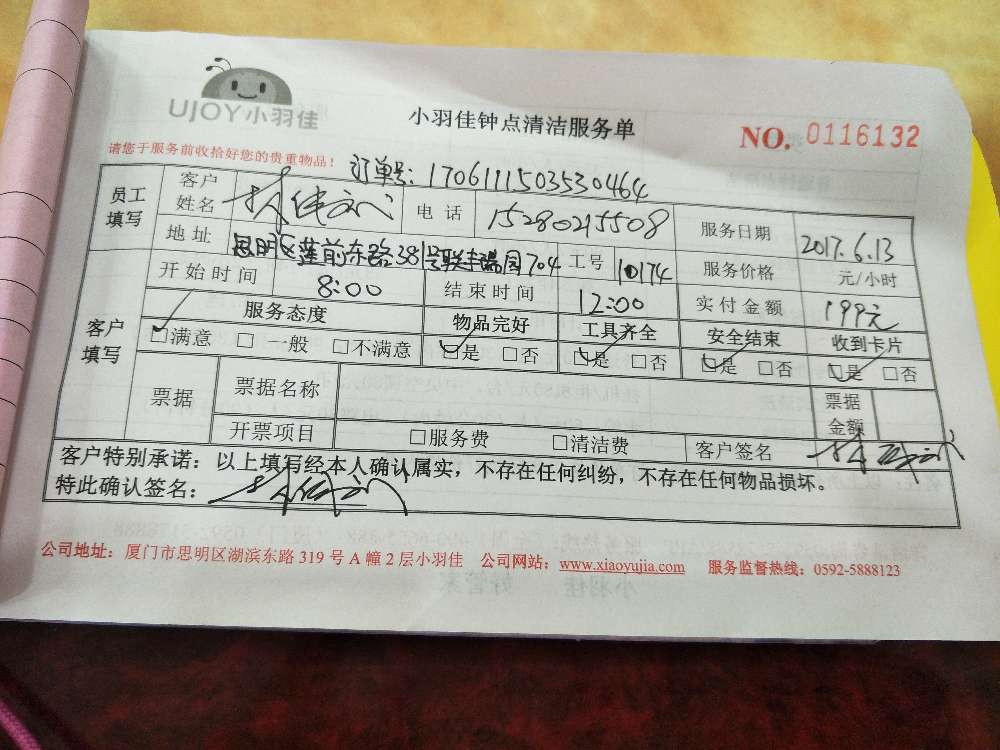 UJOY小羽佳
小羽佳钟点清洁服务单
NO. 0116132
请您于服务前收拾好您的贵重物品！
订单号: 17061115035530464
员工填写 客户姓名 电话 15280215508 服务日期 2017.6.13
地址 思明区莲前东路381号联丰瑞园704 工号 10174 服务价格 元/小时
开始时间 8:00 结束时间 12:00 实付金额 199元
客户填写 服务态度 物品完好 工具齐全 安全结束 收到卡片
□满意 □一般 □不满意 □是 □否 □是 □否 □是 □否 □是 □否
票据 票据名称 票据金额
开票项目 □服务费 □清洁费 客户签名
客户特别承诺：以上填写经本人确认属实，不存在任何纠纷，不存在任何物品损坏。
特此确认签名：
公司地址：厦门市思明区湖滨东路 319 号 A 幢 2 层小羽佳 公司网站：www.xiaoyujia.com 服务监督热线：0592-5888123